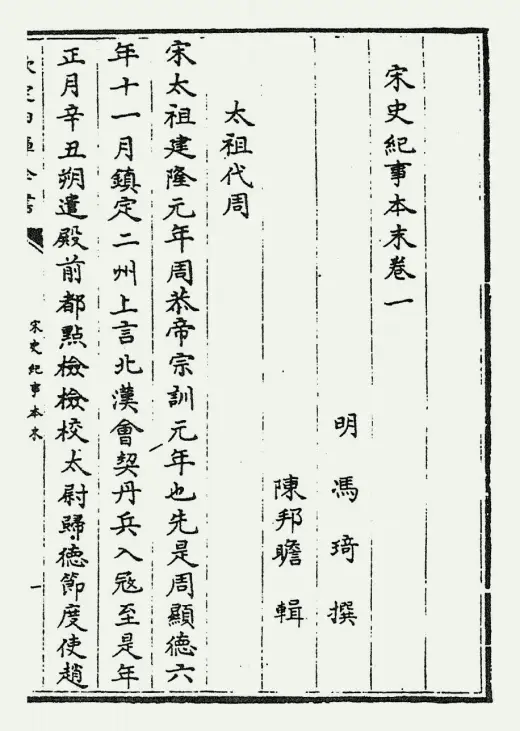 宋史紀事本末卷一
明 馮琦 撰
陳邦瞻 輯
太祖代周
宋太祖建隆元年周恭帝宗訓元年也先是周顯德六
年十一月鎮定二州上言北漢會契丹兵入寇至是年
正月辛丑朔遣殿前都點檢檢校太尉歸德節度使趙
宋史紀事本末
一